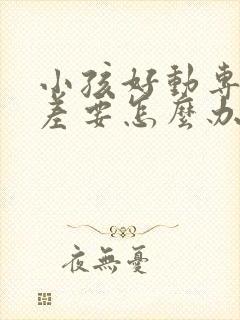 小孩好動專
差要怎麼办
夜無憂